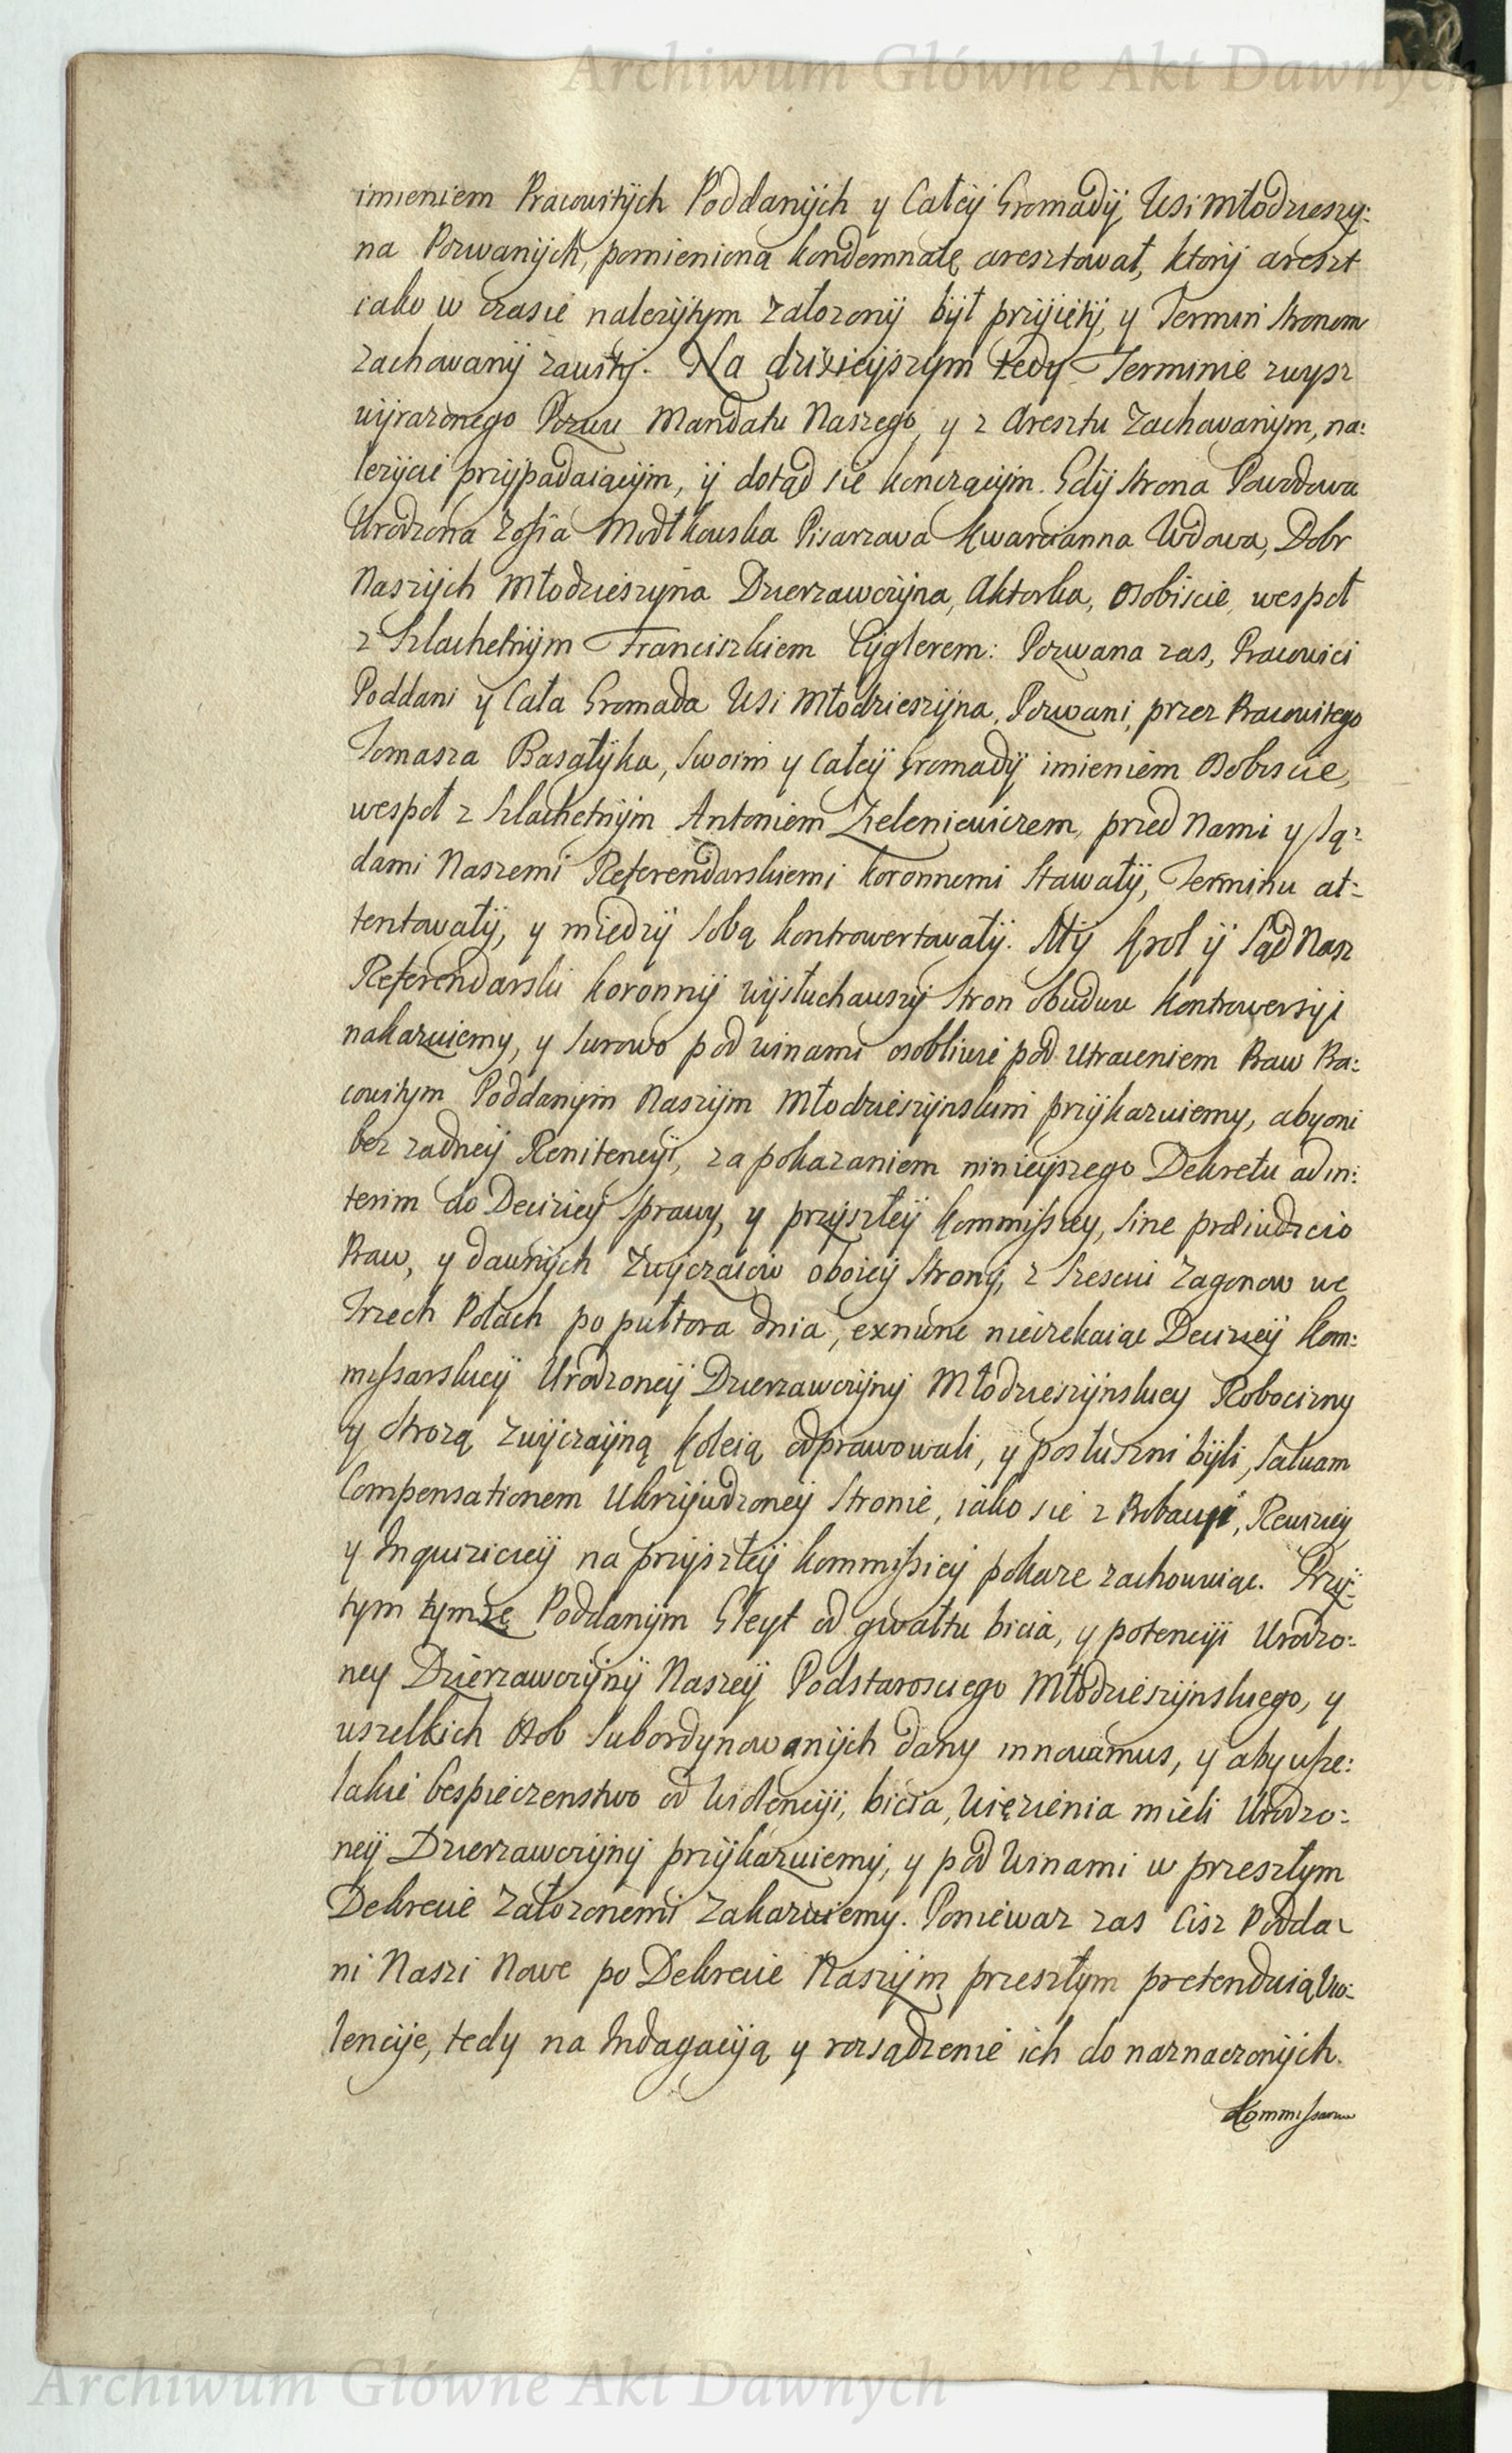 Archiwum Główne Akt Dawnych
imieniem Pracowitÿch Poddanÿch y Całeÿ Gromadÿ Wsi Młodzieszy:
na Pozwanÿch, pomieniona kondemnatę aresztował, ktorÿ areszt
iako w czasie nalezÿtym załozonÿ bÿł przÿietÿ, y Termin stronom
zachowanÿ zawitÿ. Na dzisieÿszym tedy Terminie zwysz
wÿrazonego Pozwu Mandatu Naszego, y z Aresztu zachowanÿm, na:
lezÿcie przÿpadaiącÿm, ÿ dotąd sie konczącÿm. Gdÿ strona Powodowa
Urodzona Zofia Modłkowska Pisarzowa Kwarcianna Wdowa, Dobr
Naszÿch Młodzieszyna Dzierzawczÿna, Aktorka, osobiscie, wespoł
z Szlachetnÿm Franciszkiem Cÿglerem: Pozwana zas, Pracowici
Poddani y Cała Gromada Wsi Młodzieszÿna, Pozwani, przez Pracowitego
Tomasza Basałÿka, Swoim y całeÿ Gromadÿ imieniem osobiscie,
wespoł z Szlachetnÿm Antoniem Zieleniewiczem, przed Nami y Są:
dami Naszemi Referendarskiemi koronnemi stawałÿ, Terminu at:
tentowałÿ, y miedzÿ sobą kontrowertowałÿ. Mÿ Krol ÿ Sąd Nasz
Referendarski koronnÿ wÿsłuchawszÿ stron obudwu kontrowersÿi
nakazuiemy, y surowo pod winami osobliwie pod utraceniem Praw Pra:
cowitym Poddanÿm Naszÿm Młodzieszÿnskim przÿkazuiemy, aby oni
bez zadneÿ Renitencÿi, za pokazaniem ninieÿszego Dekretu ad in:
terim do Decizieÿ sprawy, y przÿszłeÿ kommissiey, sine præiudicio
Praw, y dawnÿch zwÿczaiow oboieÿ stronÿ, z szesciu zagonow we
Trzech Polach po pułtora dnia, exnunc nieczekaiąc Decizieÿ kom:
missarskieÿ Urodzoneÿ Dzierzawczÿnÿ Młodzieszÿnskiey Robocizny
y strozą zwÿczaÿną koleią odprawowali, y posłuszni bÿli, salvam
Compensationem Ukrzÿwdzoneÿ stronie, iako sie z Probacÿi, Rewizieÿ
y Inquizicieÿ na przÿszłeÿ kommissieÿ pokaze zachowuiąc. Przÿ:
tym tymze Poddanÿm Gleÿt od gwałtu bicia, y potencÿi Urodzo:
ney Dzierzawczÿnÿ Naszeÿ Podstarosciego Młodzieszÿnskiego, y
wszelkich osob subordynowanÿch dany innovamus, y aby wsze:
lakie bespieczenstwo od wiolencÿi, bicia, więzienia mieli Urodzo:
neÿ Dzierzawczÿnÿ przÿkazuiemÿ, y pod winami w przeszłym
Dekrecie załozonemi zakazuiemy. Poniewaz zas Cisz Podda:
ni Naszi Nowe po Dekrecie Naszÿm przeszłym pretenduią wio:
lencÿe, tedy na Indagacÿą y rozsądzenie ich do naznaczonÿch
Archiwum Główne Akt Dawnych